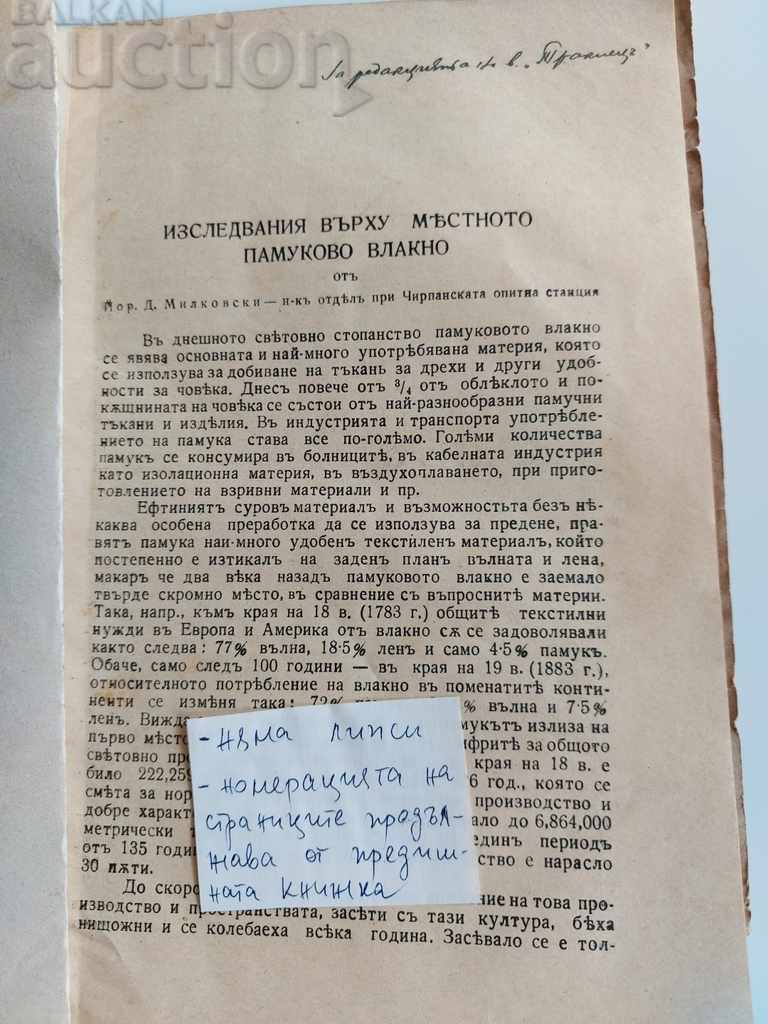 BALKAN
auction
За редакцията на в. „Тракиецъ"
ИЗСЛЕДВАНИЯ ВЪРХУ МѢСТНОТО
ПАМУКОВО ВЛАКНО
отъ
Йор. Д. Милковски — н-къ отдѣлъ при Чирпанската опитна станция
Въ днешното свѣтовно стопанство памуковото влакно
се явява основната и най-много употрѣбявана материя, която
се използува за добиване на тъкань за дрехи и други удоб-
ности за човѣка. Днесъ повече отъ 3/4 отъ облѣклото и по-
кѫщнината на човѣка се състои отъ най-разнообразни памучни
тъкани и издѣлия. Въ индустрията и транспорта употрѣбле-
нието на памука става все по-голѣмо. Голѣми количества
памукъ се консумира въ болницитѣ, въ кабелната индустрия
като изолационна материя, въ въздухоплаването, при приго-
товлението на взривни материали и пр.
Ефтиниятъ суровъ материалъ и възможностьта безъ нѣ-
каква особена преработка да се използува за предене, пра-
вятъ памука наи-много удобенъ текстиленъ материалъ, който
постепенно е изтикалъ на заденъ планъ вълната и лена,
макаръ че два вѣка назадъ памуковото влакно е заемало
твърде скромно мѣсто, въ сравнение съ въпроснитѣ материи.
Така, напр., къмъ края на 18 в. (1783 г.) общитѣ текстилни
нужди въ Европа и Америка отъ влакно сѫ се задоволявали
както следва: 77% вълна, 18·5% ленъ и само 4·5% памукъ.
Обаче, само следъ 100 години — въ края на 19 в. (1883 г.),
относителното потрѣбление на влакно въ поменатитѣ конти-
ненти се измѣня така: 72% % вълна и 7·5%
ленъ. Вижда мукътъ излиза на
първо мѣсто ифритѣ за общото
свѣтовно пр края на 18 в. е
било 222,25 6 год., която се
смѣта за нор производство и
добре характ ало до 6,864,000
метрически т единъ периодъ
отъ 135 годи ство е нарасло
30 пѫти.
- няма липси
- номерацията на
страниците продъл-
жава от предиш-
ната книжка
До скоро ние на това про-
изводство и пространствата, засѣти съ тази култура, бѣха
нищожни и се колебаеха всѣка година. Засѣвало се е тол-